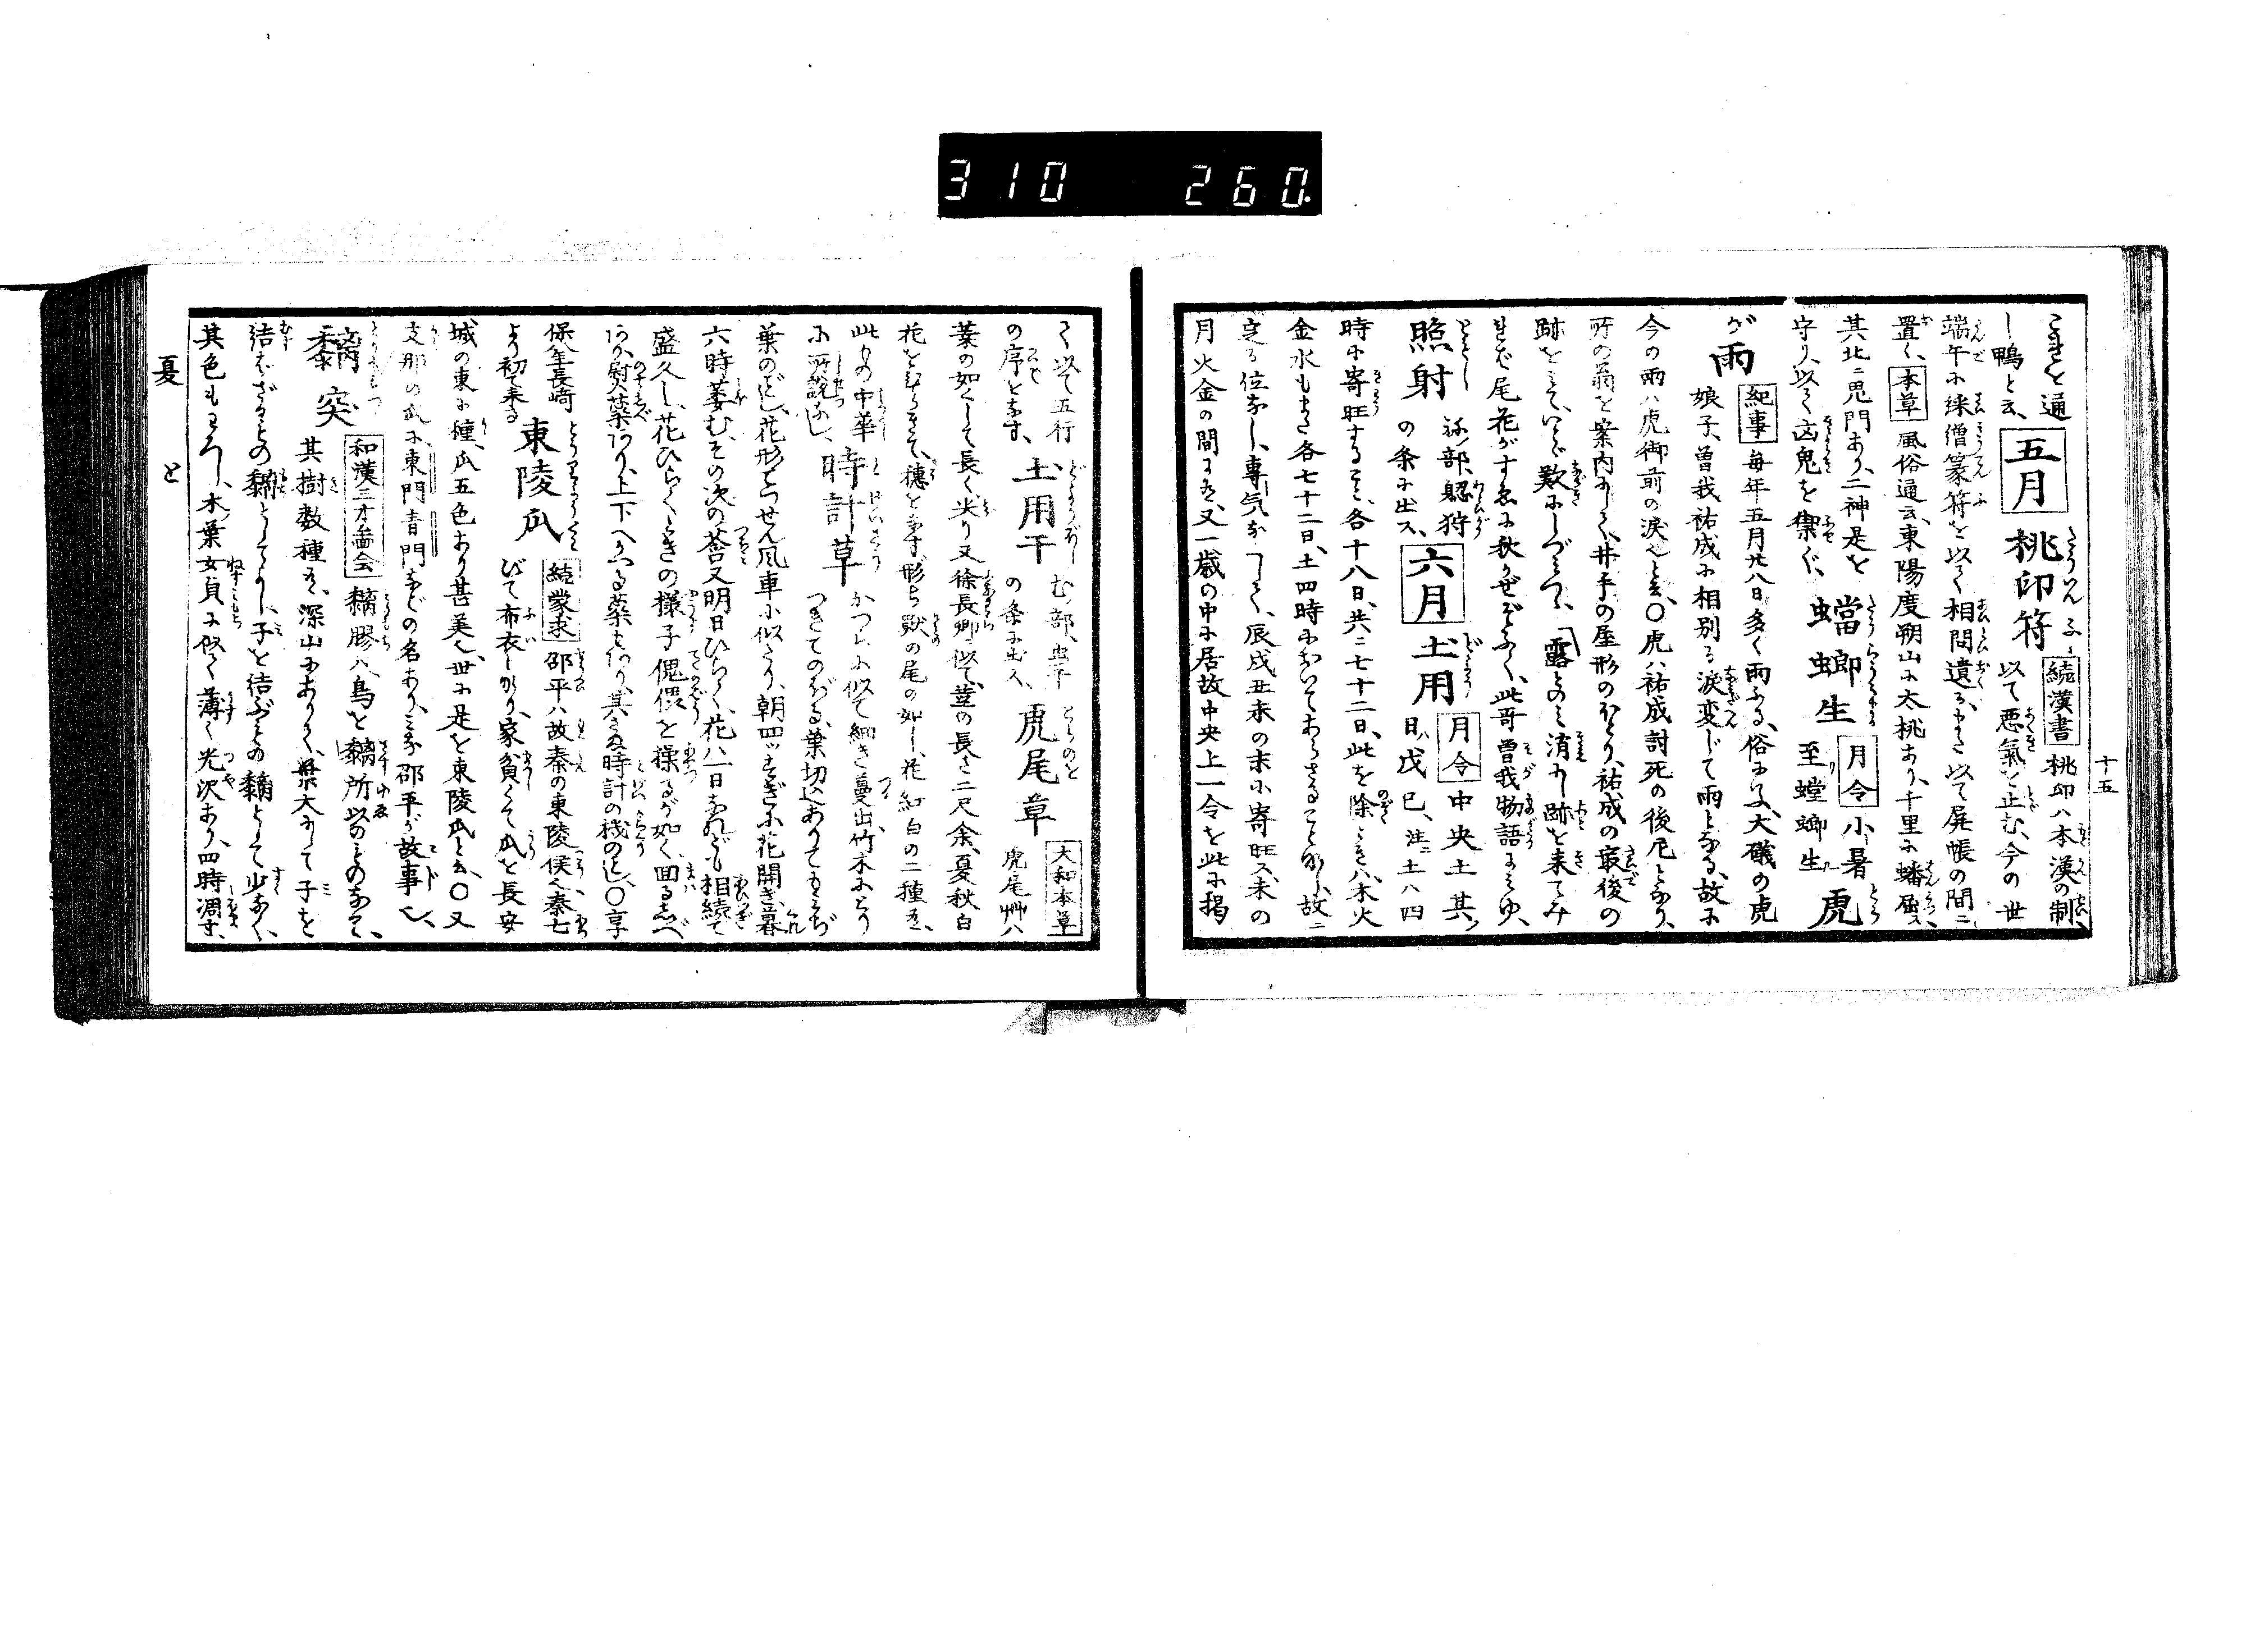 310 260.
十五
これを通
し鴨と云、五月 桃印符 続漢書 桃印ハ本漢の制、
以て悪氣を止む、今の世
端午に綵僧篆符を以て相問遺る、また以て屏帳の間ニ
置く、本草 風俗通云、東陽度朔山に大桃あり、千里に蟠屈ス、
其北ニ鬼門あり、二神是を
守り、以て凶鬼を禦ぐ、蟷螂生 月令 小暑
至螳螂生 虎
が雨 紀事 毎年五月廿八日多く雨ふる、俗にいふ、大磯の虎
娘子、曽我祐成に相別る涙変じて雨となる、故に
今の雨ハ虎御前の涙也と云、〇虎ハ祐成討死の後尼となり、
所の翁を案内にして、井手の屋形のほとり、祐成の最後の
跡をみて、いとゞ歎にしづみつゝ、「露とのみ消にし跡を来てみ
れば尾花がすゑに秋かぜぞふく、此哥曽我物語にみゆ、
照射 ね部、狩
の条に出ス、六月 土用 月令 中央土其
日ハ戊己、注ニ土ハ四
時に寄旺すること、各十八日、共ニ七十二日、此を除くときハ木火
金水もまた各七十二日、土四時においてあらざることなし、故ニ
定る位なし、専気なくして、辰戌丑未の末に寄旺ス、未の
月火金の間にて、又一歳の中に居故中央上一令を此に掲
て以て五行
の序をなす、土用干 む部、虫干
の条に出ス、虎尾草 大和本草
虎尾艸ハ
葉の如くして長く、尖り又徐長卿に似て、茎の長さ二尺余、夏秋白
花をひらきて、穂をなす、形ち獣の尾の如し、花紅白の二種、
此もの中華
に所説なし、時計草 かつらに似て細き蔓出、竹木にとり
つきてのぼる、葉切込ありてもみぢ
葉のごとし、花形てつせん風車に似たり、朝四ッすぎに花開き、暮
六時萎む、その次の莟又明日ひらく、花ハ一日なれども相続て
盛久し、花ひらくときの様子傀儡を操るが如く、回るしべ
あり、上下へかへる、其さま時計の機のごとし、〇享
保年長崎
より初て来る 東陵瓜 続蒙求 邵平ハ故秦の東陵侯也、秦亡
びて布衣となり、家貧くて瓜を長安
城の東に種、瓜五色あり甚美也、世に是を東陵瓜と云、〇又
支那の瓜に、東門青門などの名あり、みな邵平が故事也、
黐突 和漢三才啚会 黐膠ハ鳥を黐所以のものなり、
其樹数種、深山にありて、葉大にして子を
結バざるもの黐としてよし、子を結ぶもの黐として少なく、
其色もわろし、木葉女貞に似て薄く光沢あり、四時凋ず、
夏 と